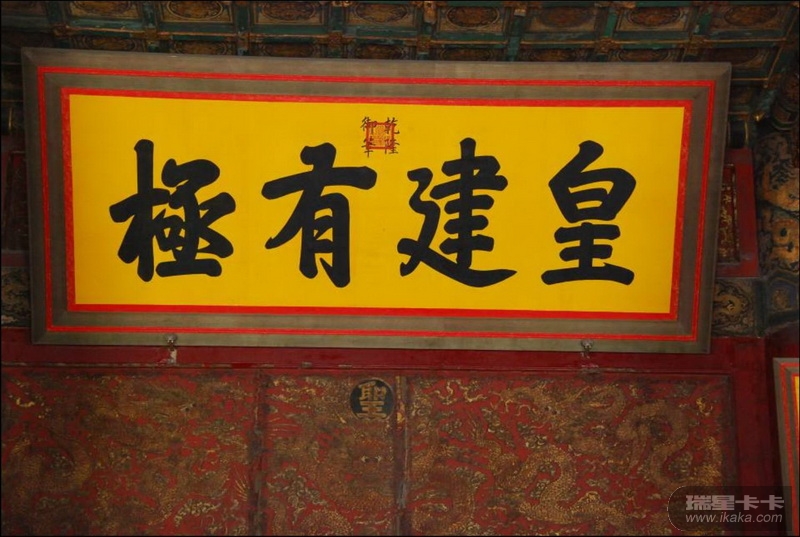 乾隆
御筆
皇建有極
聖
瑞星卡卡
www.ikaka.com